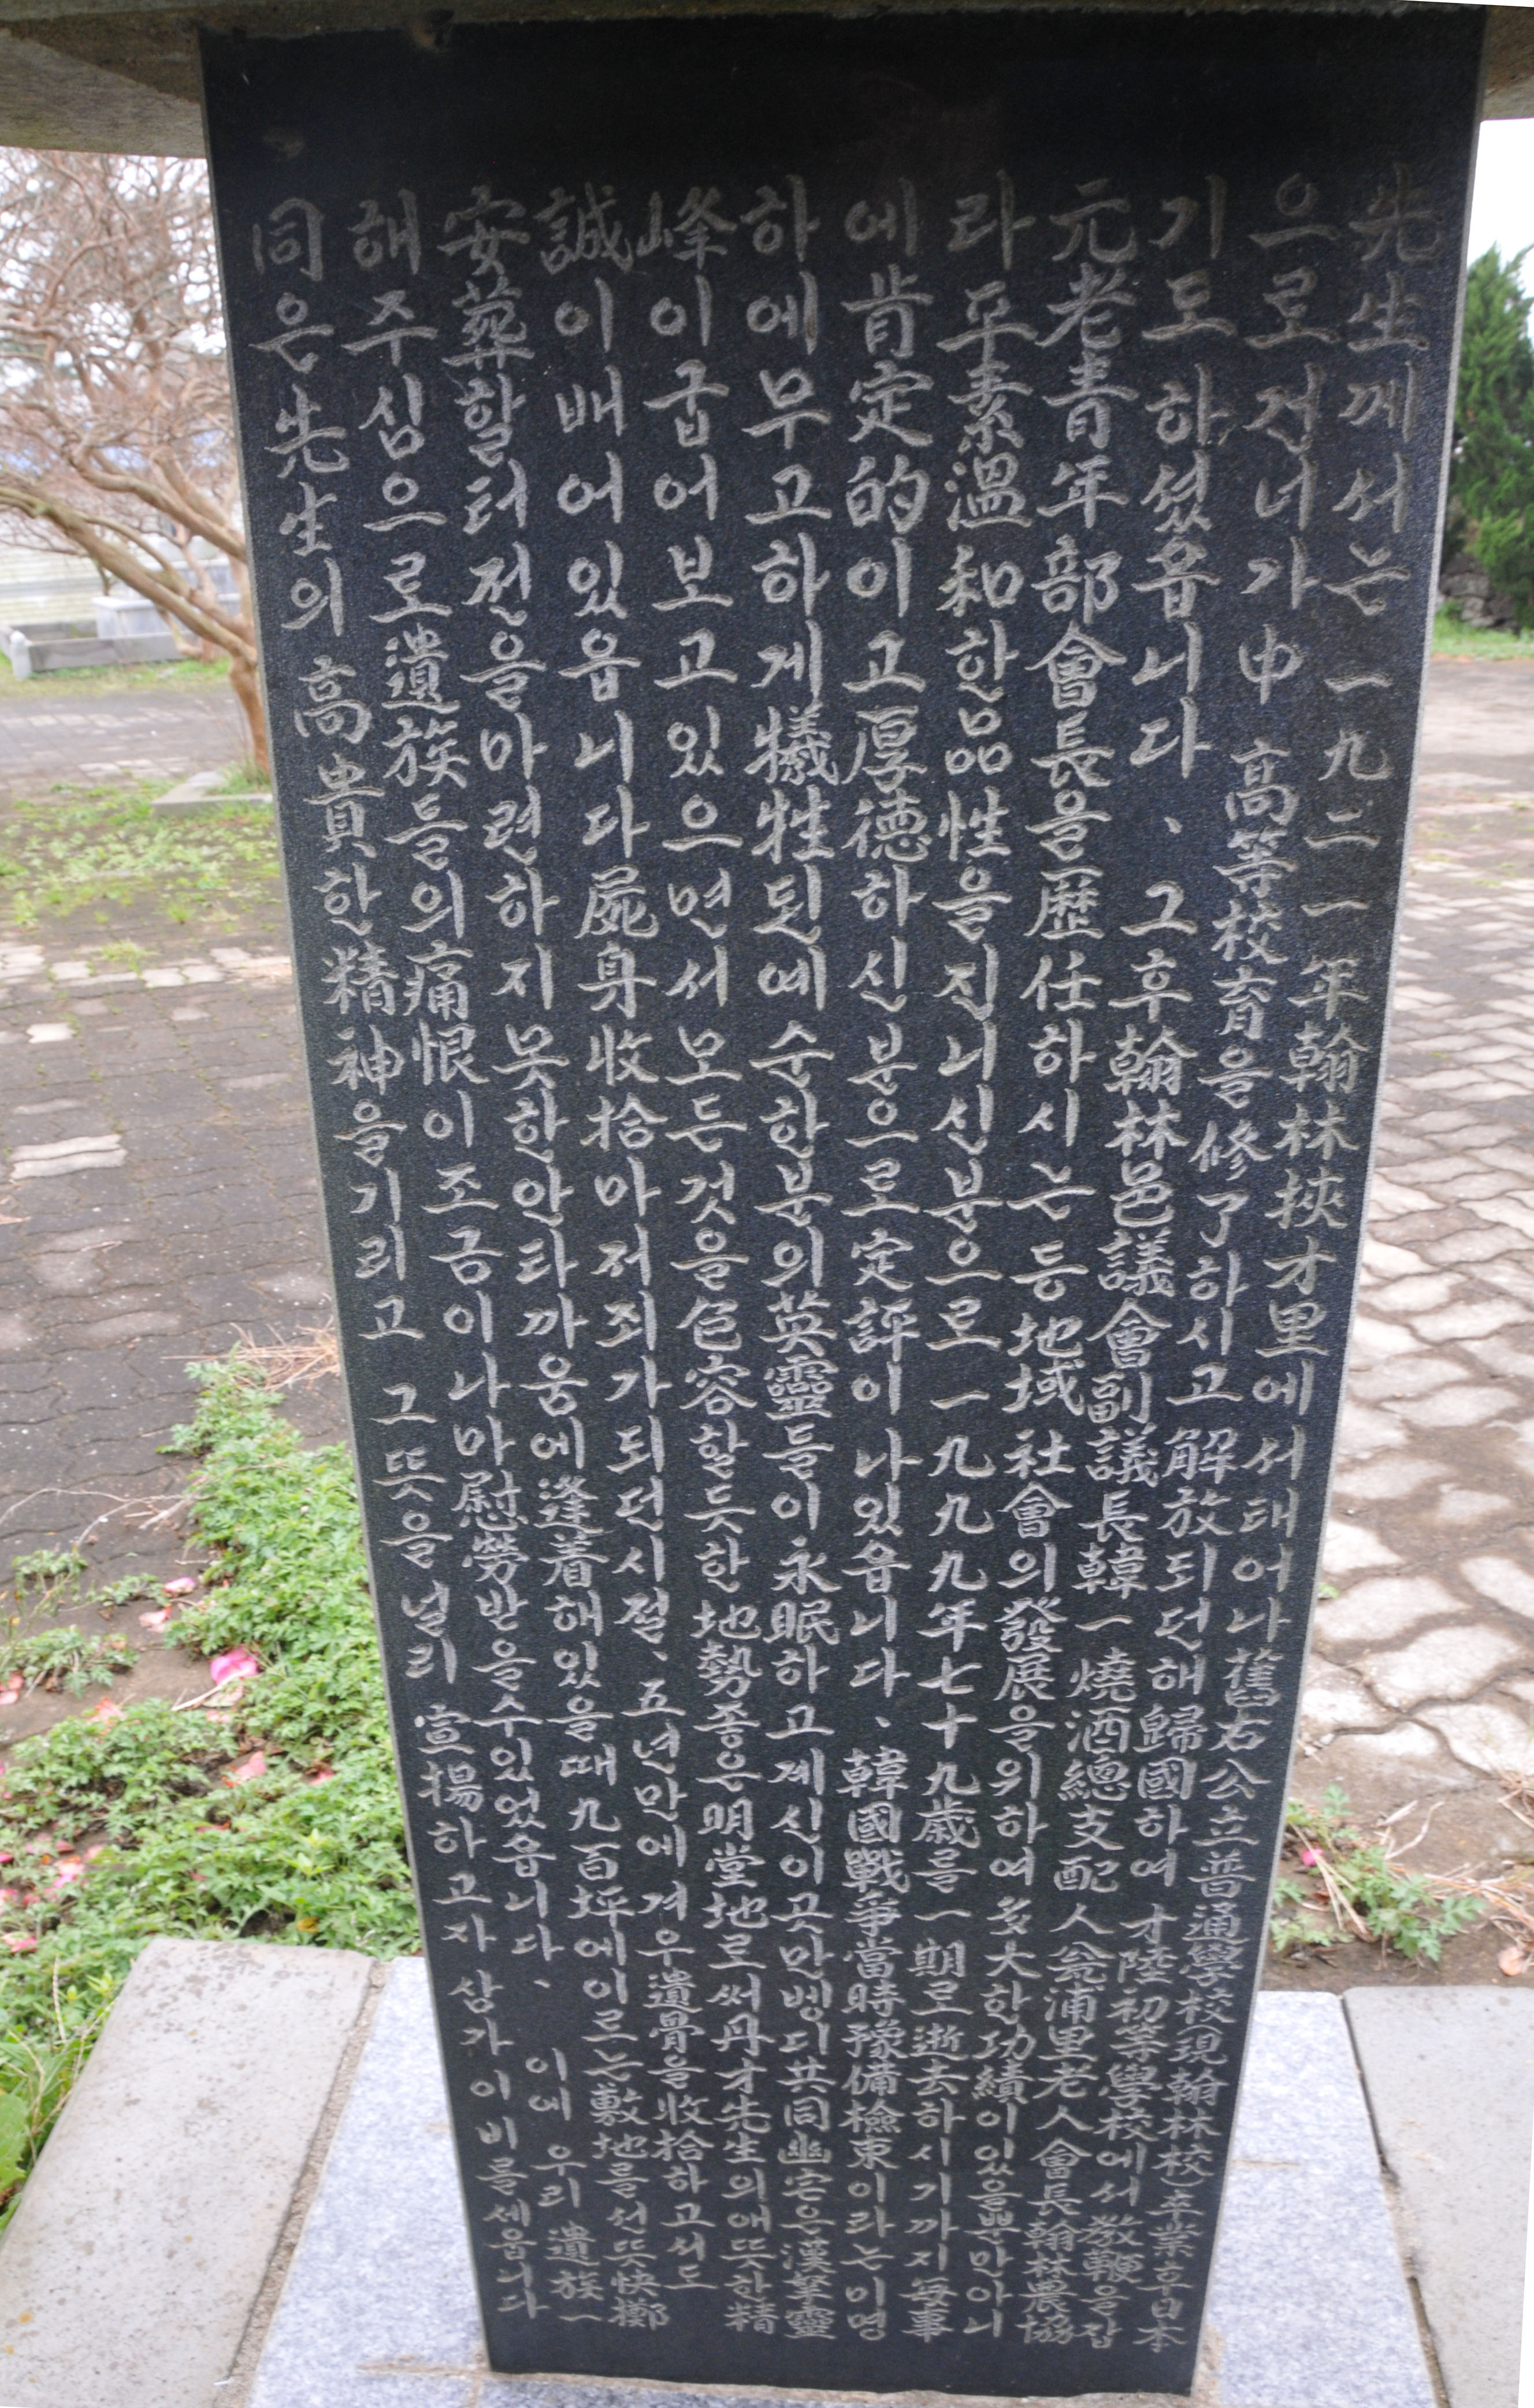 先生께서는 一九二一年翰林挾才里에서태어나舊右公立普通學校(現翰林校)卒業후日本
으로건너가 中 高等校育을修了하시고 解放되던해歸國하여 才陸初等學校에서敎鞭을잡
기도 하셨읍니다、그후翰林邑議會副議長韓一燒酒總支配人瓮浦里老人會長翰林農協
元老青年部會長을歷任하시는등地域社會의發展을위하여多大한功績이있을뿐만아니
라平素溫和한品性을진니신분으로一九九九年七十九歲를一期로逝去하시기까지每事
에肯定的이고厚德하신분으로定評이나있읍니다、韓國戰爭當時豫備檢束이라는미명
하에무고하게犧牲된예순한분의英靈들이永眠하고계신이곳만벵디共同幽宅은漢拏靈
峰이굽어보고있으면서모든것을包容할듯한地勢좋은明堂地로써丹才先生의애뜻한精
誠이배어있읍니다屍身收拾마저죄가되던시절、五년만에 겨우遺骨을收拾하고서도
安葬할터전을마련하지못한안타까움에逢着해있을때九百坪에이르는敷地를선뜻快擲
해주심으로遺族들의痛恨이조금이나마慰勞받을수있었읍니다、이에 우리 遺族一
同은先生의高貴한精神을기리고 그뜻을널리宣揚하고자삼가이비를세웁니다